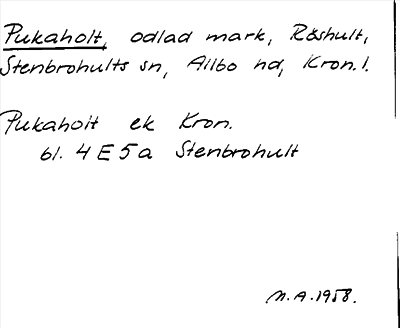 Pukaholt, odlad mark, Råshult,
Stenbrohults sn, Allbo hd, Kron.l.
Pukaholt ek Kron.
bl. 4 E 5 a Stenbrohult
M.A. 1958.